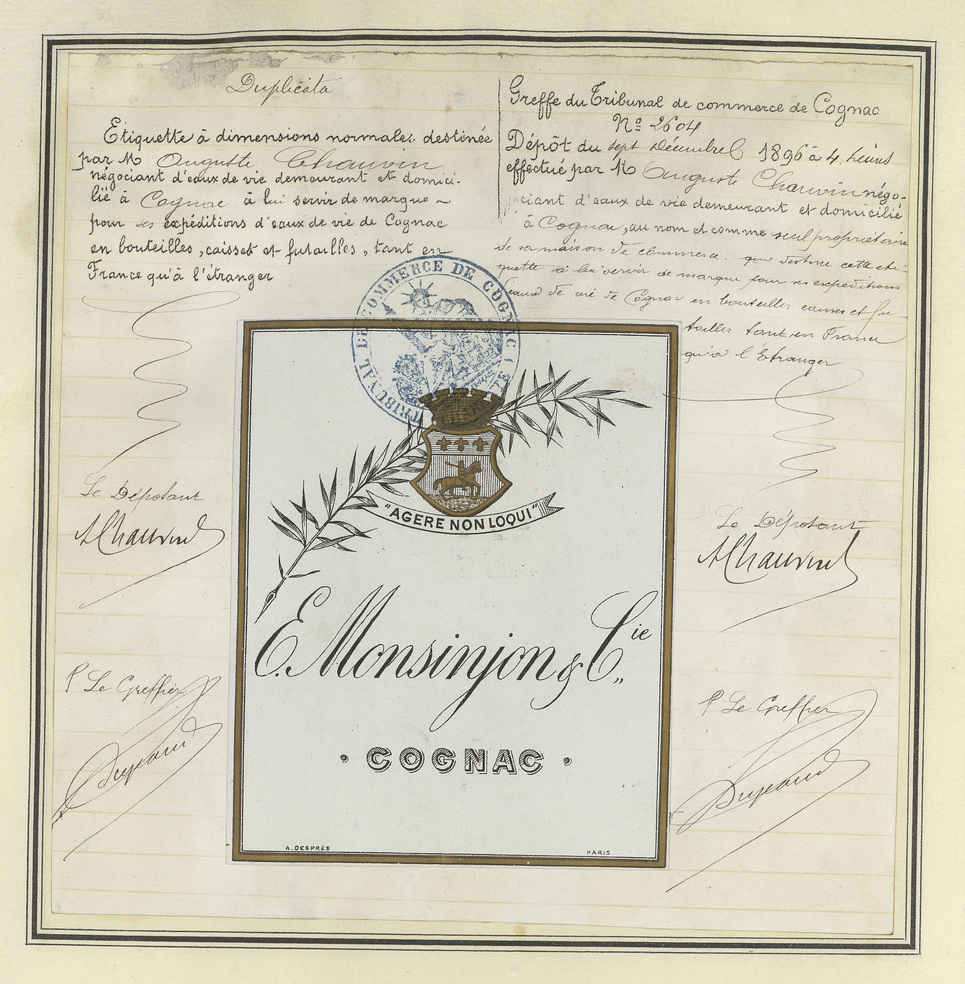 Duplicata
Etiquette à dimensions normales destinée
par M Auguste Chauvin
négociant d'eaux de vie demeurant et domici-
lié à Cognac à lui servir de marque
pour ses expéditions d'eaux de vie de Cognac
en bouteilles, caisses et futailles, tant en
France qu'à l'étranger
Le Déposant
AChauvin
P Le Greffier
Greffe du Tribunal de commerce de Cognac
No 2604
Dépôt du sept Décembre 1896 à 4 heures
effectué par M Auguste Chauvin négo-
ciant d'eaux de vie demeurant et domicilié
à Cognac, au nom et comme seul propriétaire
de sa maison de commerce, qui destine cette éti-
quette à lui servir de marque pour ses expéditions
d'eaux de vie de Cognac en bouteilles caisses et fu-
tailles tant en France
qu'à l'Etranger
Le Déposant
AChauvin
P Le Greffier
TRIBUNAL DE COMMERCE DE COGNAC
"AGERE NON LOQUI"
E. Monsinjon & Cie
· COGNAC ·
A. DESPRÉS PARIS